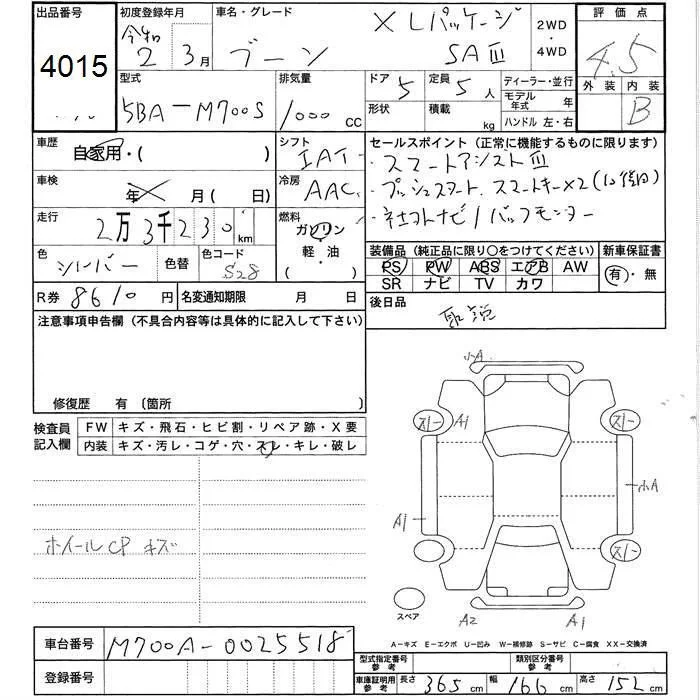 出品番号
4015
初度登録年月
令和 2年 3月
車名・グレード
ブーン X Lパッケージ SAⅢ
2WD
・
4WD
評価点
4.5
外装 内装
B
型式
5BA-M700S
排気量
1000 CC
ドア 5
形状
定員 5人
積載 kg
ディーラー・並行
モデル年式 年
ハンドル 左・右
車歴
自家用・( )
シフト
IAT
セールスポイント (正常に機能するものに限ります)
・スマートアシストⅢ
・プッシュスタート、スマートキー×2
・社外ナビ/バックモニター
車検
年 月 ( 日)
冷房
AAC
走行
2万3千230km
燃料
ガソリン
軽・油
( )
色
シルバー
色替
色コード
S28
装備品 (純正品に限り○をつけてください)
PS PW ABS エアB AW
SR ナビ TV カワ
新車保証書
有・無
R券 8610円
名変通知期限 月 日
後日品
取説
注意事項申告欄 (不具合内容等は具体的に記入して下さい)
修復歴 有 〔箇所 〕
検査員
記入欄
FW キズ・飛石・ヒビ割・リペア跡・X要
内装 キズ・汚レ・コゲ・穴・スレ・キレ・破レ
ホイールCP キズ
小A
スレ A1 スレ
A1 小A
スレ
スペア
A2 A1
A-キズ E-エクボ U-凹み W-補修跡 S-サビ C-腐食 XX-交換済
車台番号 M700A-0025518
登録番号
型式指定番号
参考
類別区分番号
参考
車庫証明用
参考
長さ 365cm 幅 166cm 高さ 152cm